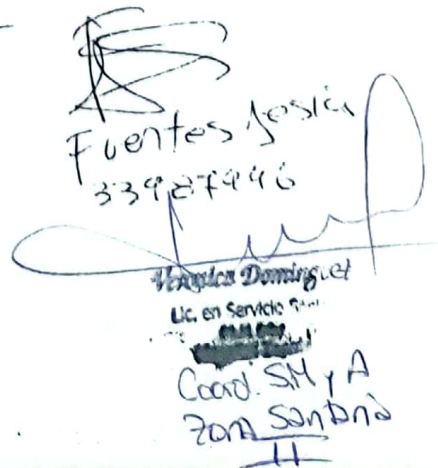 Fuentes Jesica
33987996
Veronica Dominguez
Lic. en Servicio
Coord. SM y A
Zona Santana
II